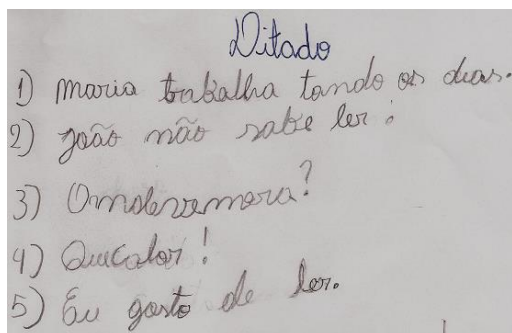 Ditado
1) maria trabalha tando os dias.
2) joão não sabe ler :
3) Omdevemora?
4) Quecalor!
5) Eu gosto de ler.